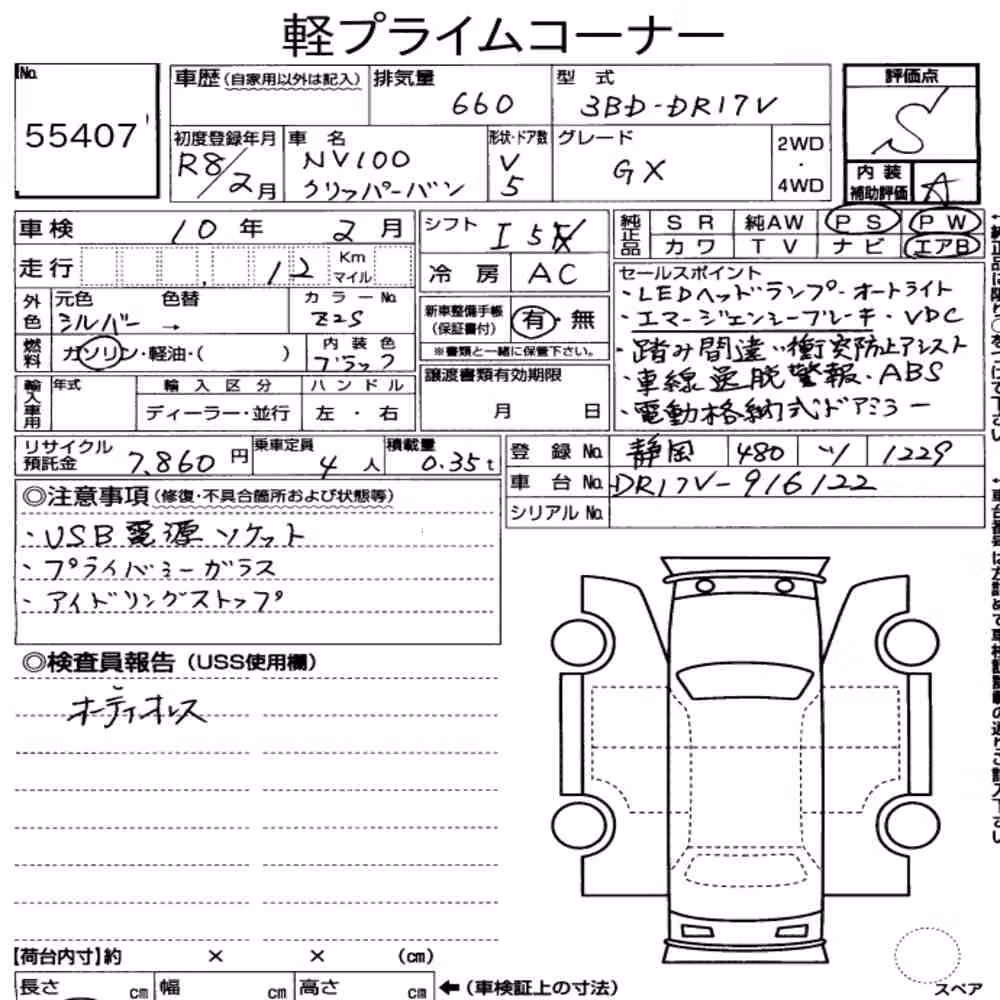 軽プライムコーナー
No.
55407
車歴(自家用以外は記入)
排気量
660
型 式
3BD-DR17V
評価点
S
初度登録年月
R8/2月
車 名
NV100
クリッパーバン
形状・ドア数
V
5
グレード
GX
2WD
・
4WD
内装
補助評価
A
車検
10年 2月
シフト
I5
純正品
SR 純AW PS PW
カワ TV ナビ エアB
走行
12
Km
マイル
冷房
AC
セールスポイント
・LEDヘッドランプ-オートライト
・エマージェンシーブレーキ・VDC
・踏み間違い衝突防止アシスト
・車線逸脱警報・ABS
・電動格納式ドアミラー
外色
元色
シルバー →
色替
カラーNo.
Z2S
新車整備手帳
(保証書付)
有・無
※書類と一緒に保管下さい。
燃料
ガソリン・軽油・( )
内装色
ブラック
輸入車用
年式
輸入区分
ハンドル
ディーラー・並行
左・右
譲渡書類有効期限
月 日
リサイクル
預託金
7,860円
乗車定員
4人
積載量
0.35t
登録No.
静岡 480 ツ 1229
車台No.
DR17V-916122
シリアルNo.
◎注意事項(修復・不具合箇所および状態等)
・USB電源ソケット
・プライバシーガラス
・アイドリングストップ
◎検査員報告(USS使用欄)
オーディオレス
【荷台内寸】約 × × (cm)
長さ cm 幅 cm 高さ cm
←(車検証上の寸法)
スペア